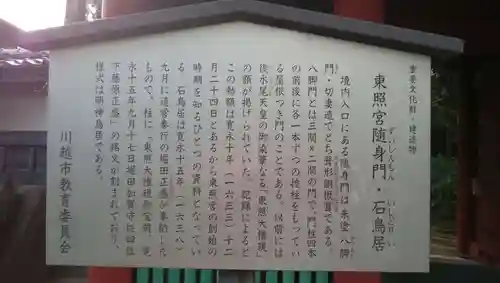 重要文化財・建造物
東照宮随身門・石鳥居
ずいしんもん
いしどりい
境内入口にある随身門は朱塗八脚
門・切妻造でとち葺形銅板葺である。
八脚門とは三間×二間の門で、門柱四本
の前後に各一本ずつの控柱をもってい
る屋根つき門のことである。以前には
後水尾天皇の御染筆なる「東照大権現」
の額が掲げられていた。記録によると
この勅額は寛永十年（一六三三）十二
月二十四日とあるから東照宮の創始の
時期を知るひとつの資料となってい
る。石鳥居は寛永十五年（一六三八）
九月に造営奉行の堀田正盛が奉納した
もので、柱に「東照大権現御宝前、寛
永十五年九月十七日堀田加賀守従四位
下藤原正盛」の銘文が刻まれており、
様式は明神鳥居である。
川越市教育委員会